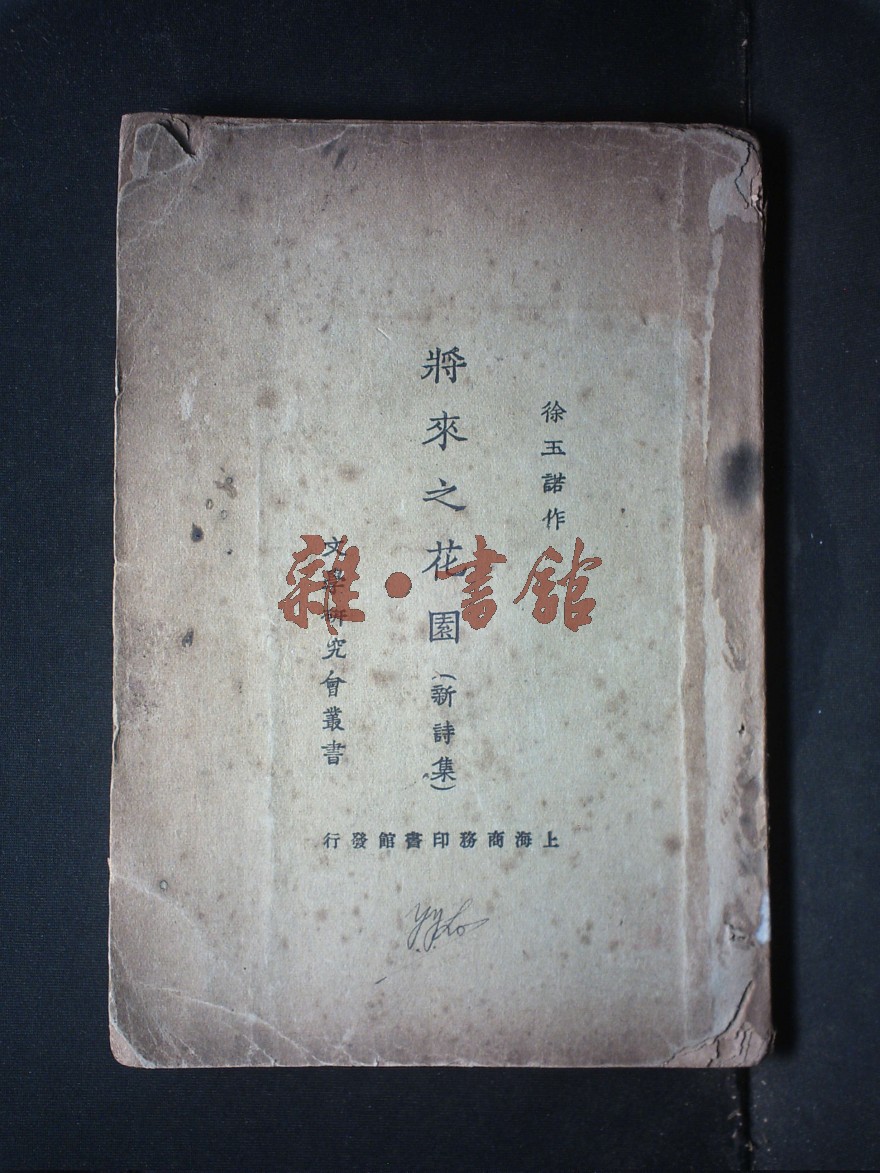 徐玉諾作
將來之花園(新詩集)
文學研究會叢書
上海商務印書館發行
雜·書館